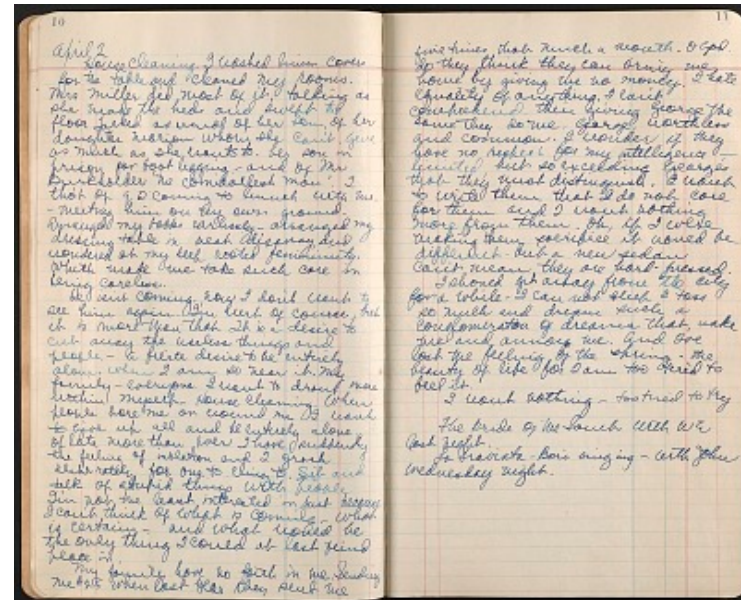 10
April 2
House cleaning. I washed linen covers
for the table and cleaned my rooms.
Mrs Miller did most of it. Talking as
she made the beds and swept the
floor of her
daughter Marion whom she can't give
as much as she wants to. her son in
prison for boot legging - and of Mr
Burkholder the man. I
thot of coming to lunch with me.
- meeting him on my own ground.
my books carelessly - arranged my
dressing table in best and
wondered at my deep rooted femininity.
Which made me take such care in
being careless.
He isnt coming. now I dont want to
see him again. I'm hurt of course, but
it is more than that. It is a desire to
cut away the useless things and
people - a desire to be entirely
alone. when I am so near it. My
family - everyone I want to draw more
within myself - house cleaning. When
people bore me or wound me I want
to give up all and be entirely alone
of late more than ever I have suddenly
the feeling of isolation and I
for one to cling to. Sit and
talk of stupid things with people
I'm not the least interested in just because
I can't think of what is coming - what
is certain - and what would be
the only thing I could at last find
peace in.
My family have no faith in me. Sending
me $25 when last they sent me
11
five times that much a month. O God.
So they think they can bring me
home by giving me no money. I hate
equality of anything. I can't
comprehend their giving George the
same they do me. George worthless
and common. I wonder if they
have no respect for my intelligence -
limited but so exceeding Georges
that they must distinguish. I want
to write them that I do not care
for them and I want nothing
more from them. Oh, if I were
making them sacrifice it would be
different - but a new sedan
can't mean they are hard-pressed.
I should get away from the city
for a while - I can not sleep I toss
so much and dream such a
conglomeration of dreams that wake
me and annoy me. And Ive
lost the feeling of the spring - the
beauty of life for I am too tired to
feel it.
I want nothing - too tired to try
The Bride of the Lamb with
last night.
La Traviata - Bori singing - with John
Wednesday night.